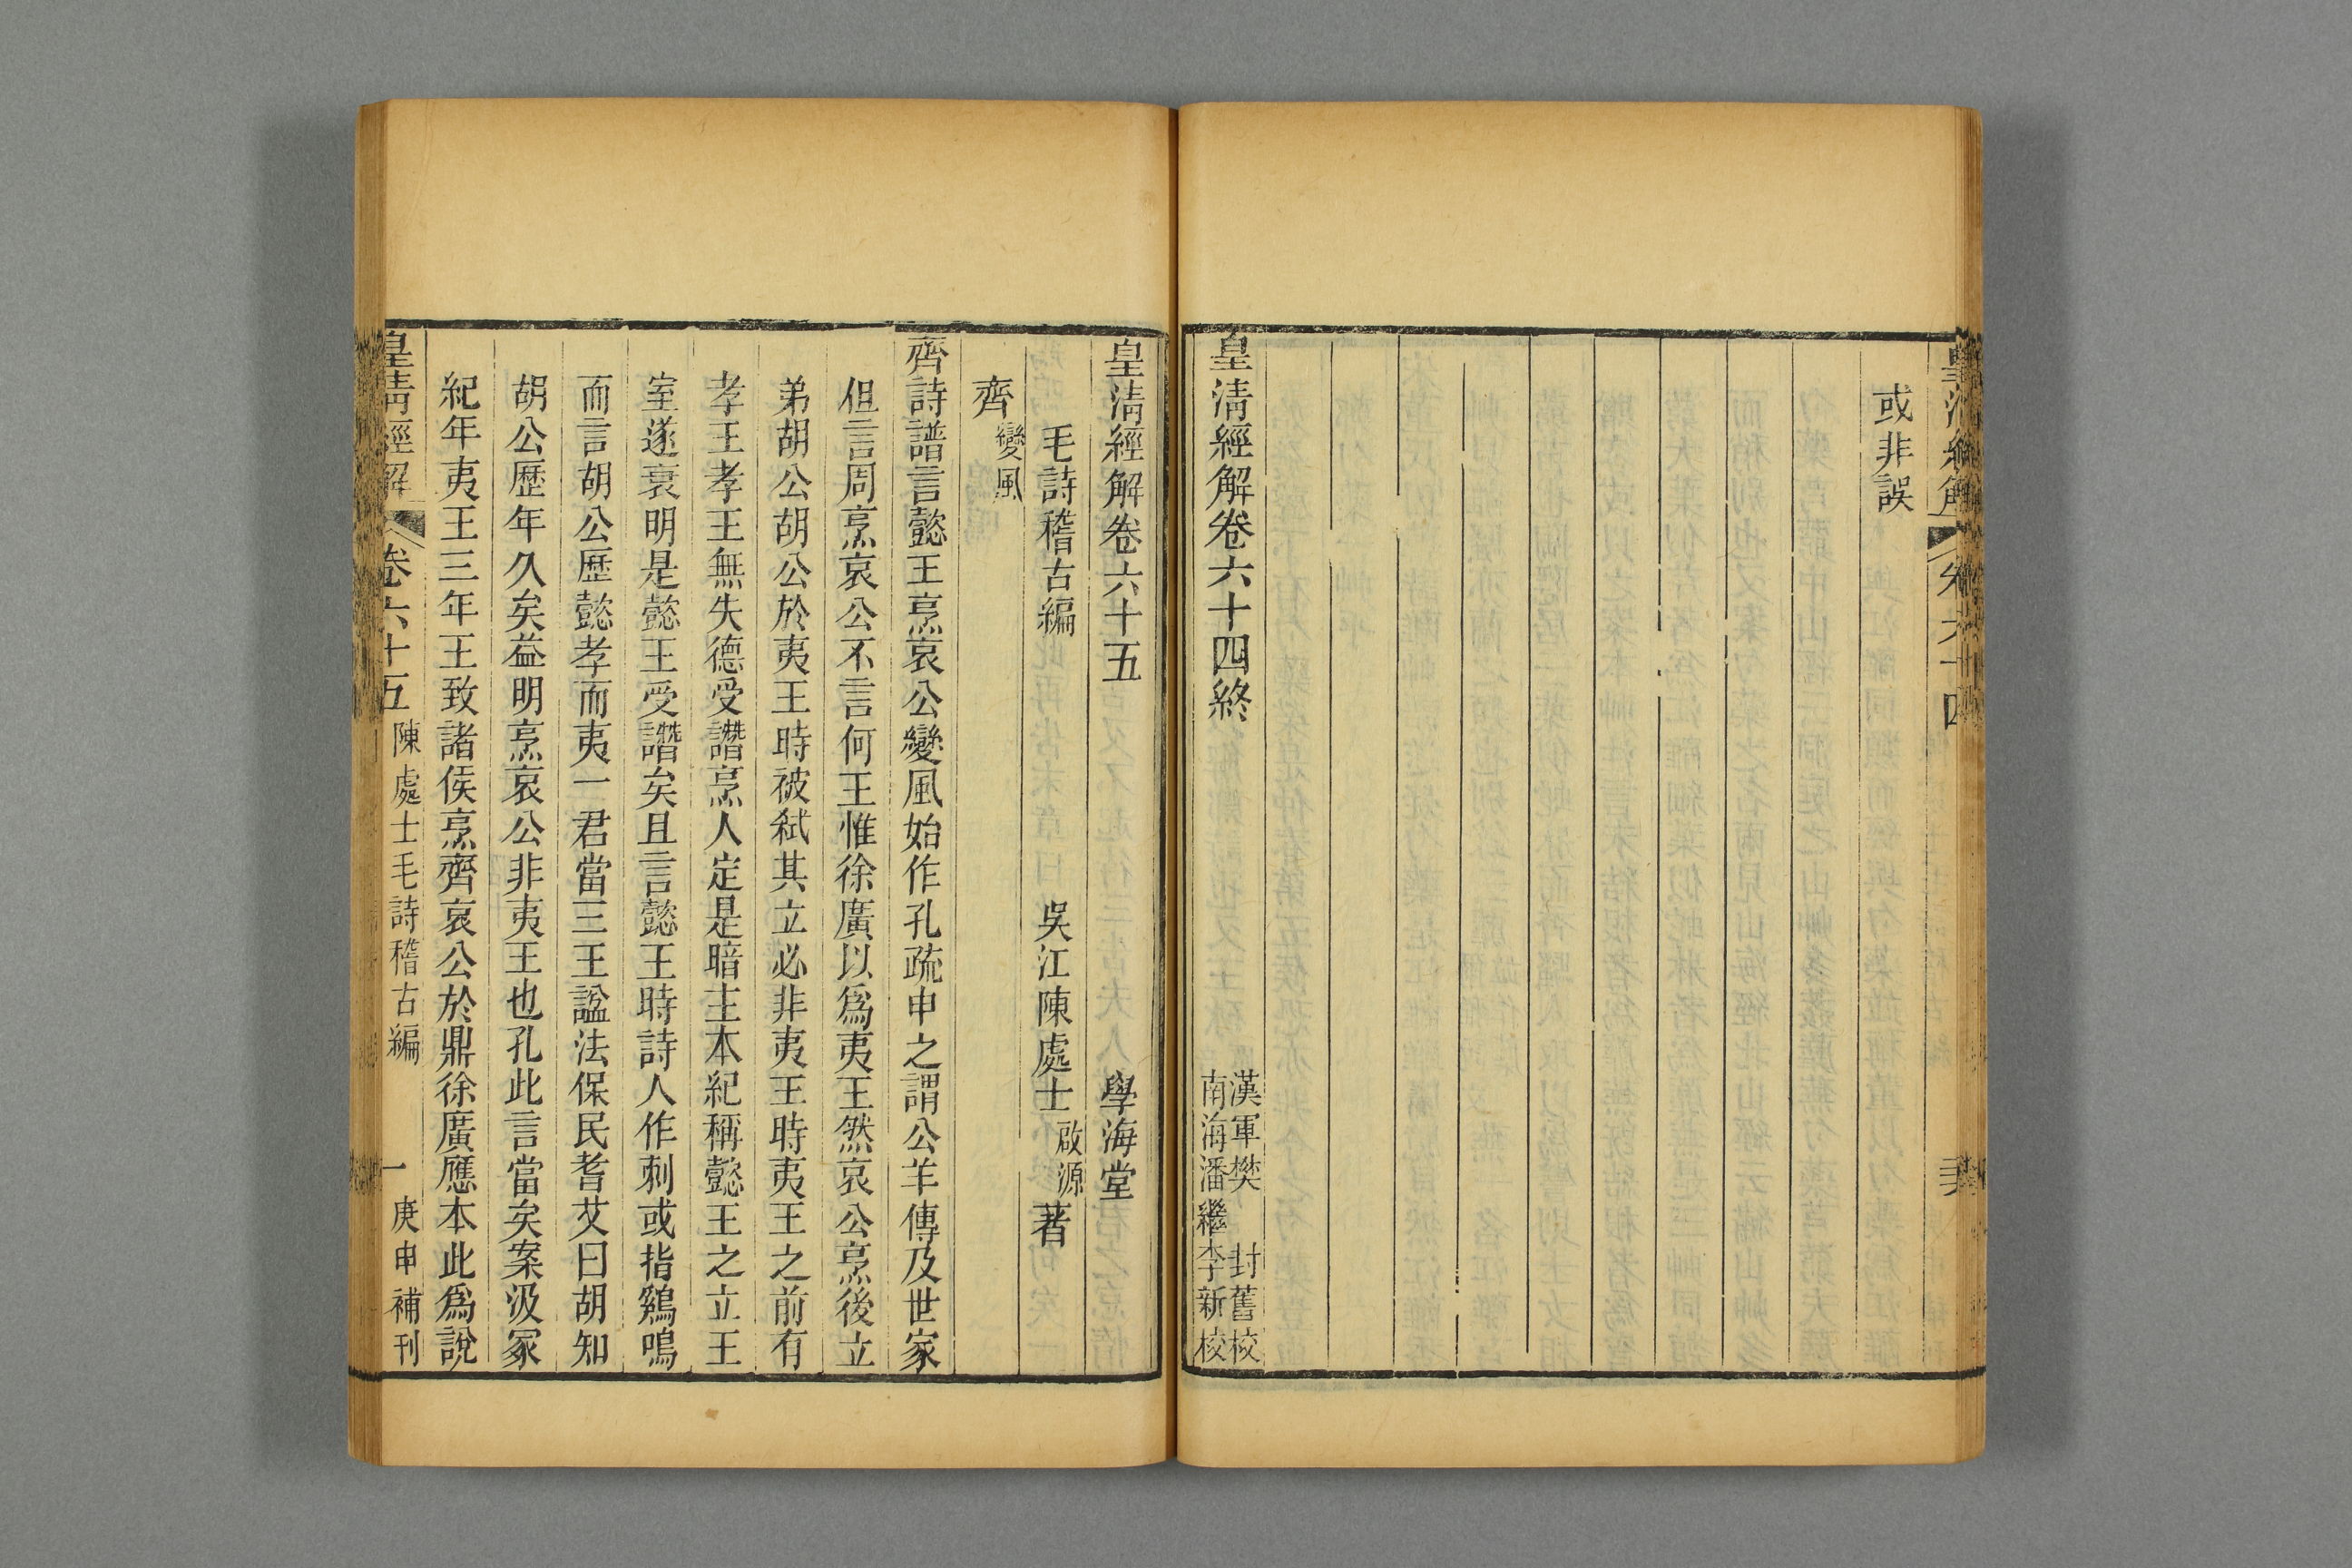 皇清經解
卷六十四
或非誤
皇清經解卷六十四終
漢軍樊封舊校
南海潘繼李新校
皇清經解卷六十五
學海堂
毛詩稽古編
吳江陳處士啟源著
齊變風
齊詩譜言懿王烹哀公變風始作孔疏申之謂公羊傳及世家
但言周烹哀公不言何王惟徐廣以爲夷王然哀公烹後立
弟胡公胡公於夷王時被弒其立必非夷王時夷王之前有
孝王孝王無失德受譖烹人定是暗主本紀稱懿王之立王
室遂衰明是懿王受譖矣且言懿王時詩人作刺或指雞鳴
而言胡公歷懿孝而夷一君當三王諡法保民耆艾曰胡知
胡公歷年久矣益明烹哀公非夷王也孔此言當矣案汲冢
紀年夷王三年王致諸侯烹齊哀公於鼎徐廣應本此爲說
皇清經解
卷六十五
陳處士毛詩稽古編
一
庚申補刊